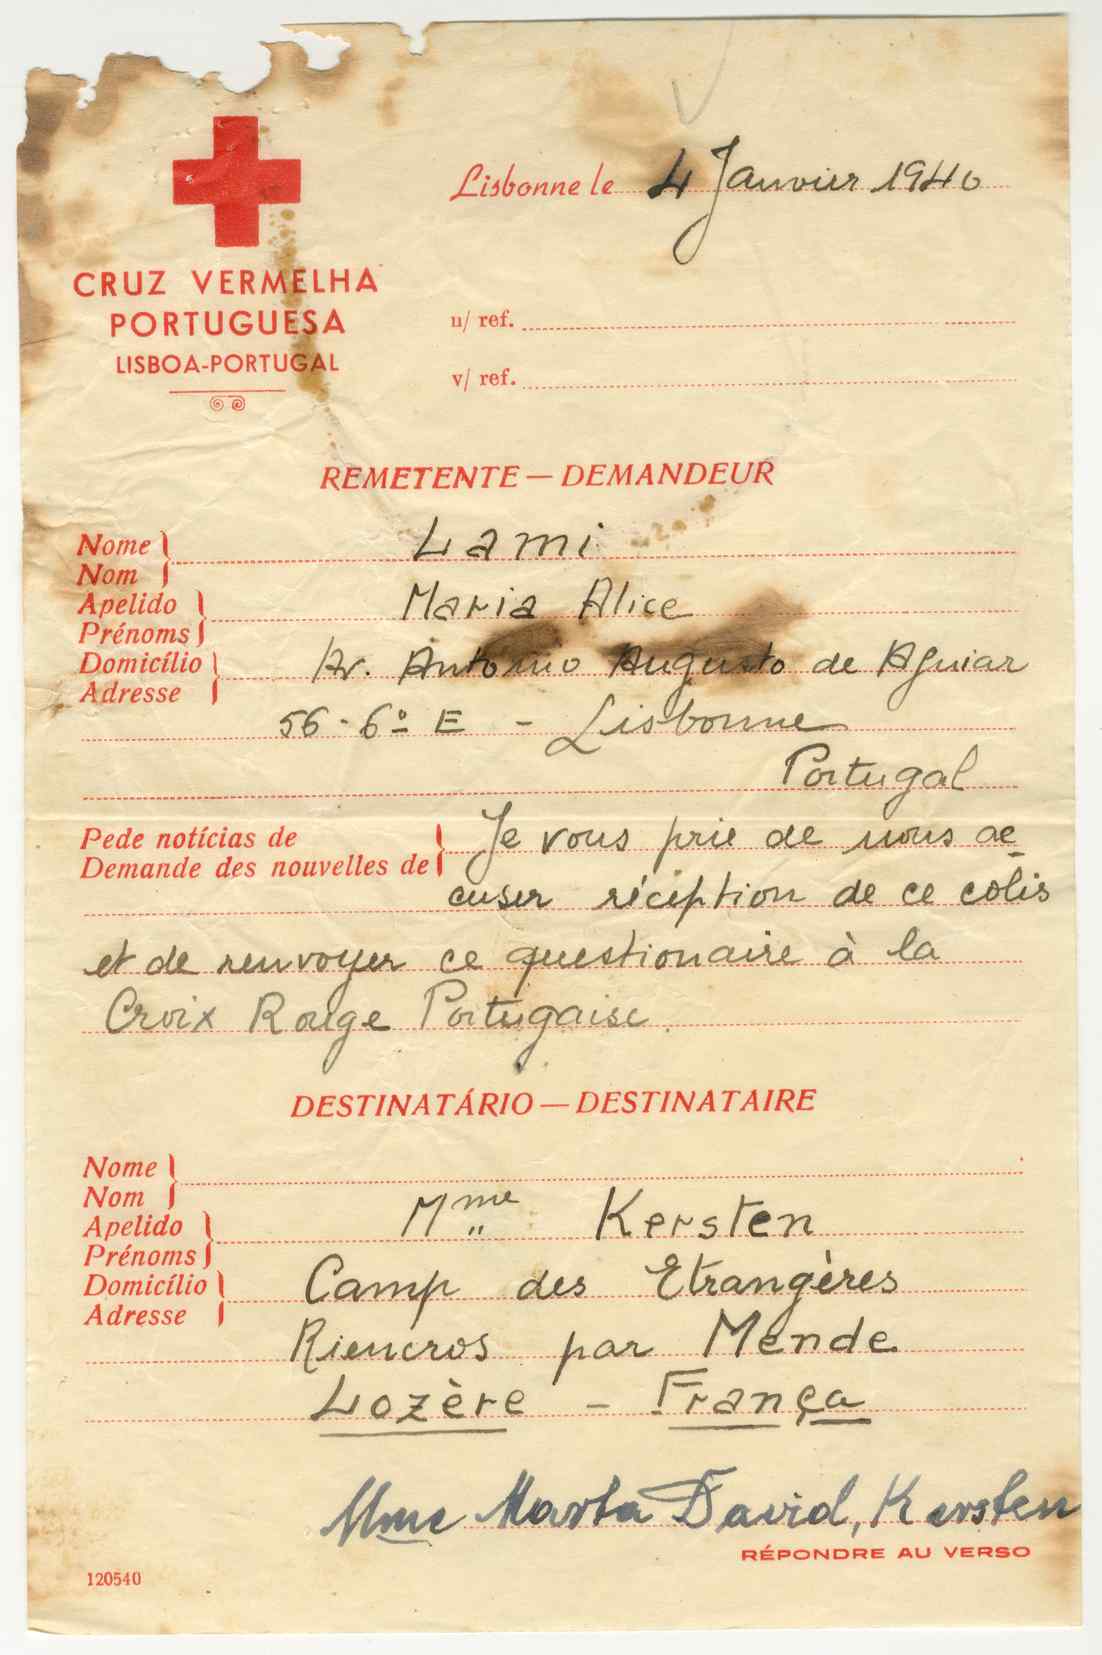 CRUZ VERMELHA
PORTUGUESA
LISBOA-PORTUGAL
Lisbonne le 4 Janvier 1940
n/ ref.
v/ ref.
REMETENTE — DEMANDEUR
Nome
Nom
Lami
Apelido
Prénoms
Maria Alice
Domicílio
Adresse
Av. Antonio Augusto de Aguiar
56-6º E - Lisbonne
Portugal
Pede notícias de
Demande des nouvelles de
Je vous prie de nous ac
cuser réception de ce colis
et de renvoyer ce questionaire à la
Croix Rouge Portugaise
DESTINATÁRIO — DESTINATAIRE
Nome
Nom
Apelido
Prénoms
Mme Kersten
Domicílio
Adresse
Camp des Etrangères
Riencros par Mende
Lozère - França
Mme Marta David, Kersten
RÉPONDRE AU VERSO
120540